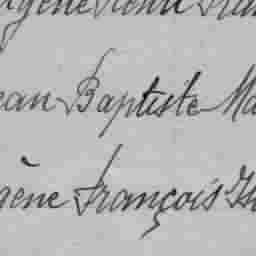 ugène Rémi
ean Baptiste Ma
gène François